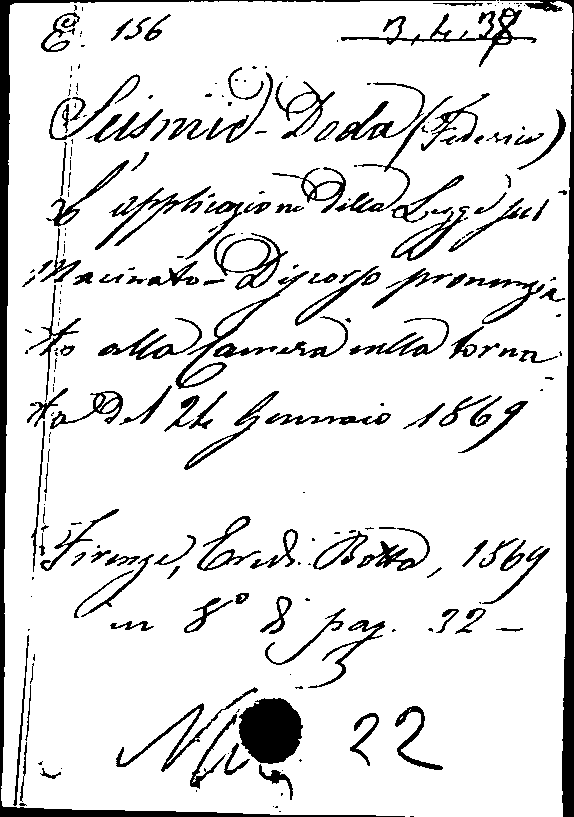 E. 156 3, 4, 38
Seismit-Doda (Federico)
L'applicazione della Legge sul
Macinato - Discorso pronunzia
to alla Camera nella torna
ta del 24 Gennaio 1869
Firenze, Eredi Botta, 1869
in 8° di pag. 32 -
22